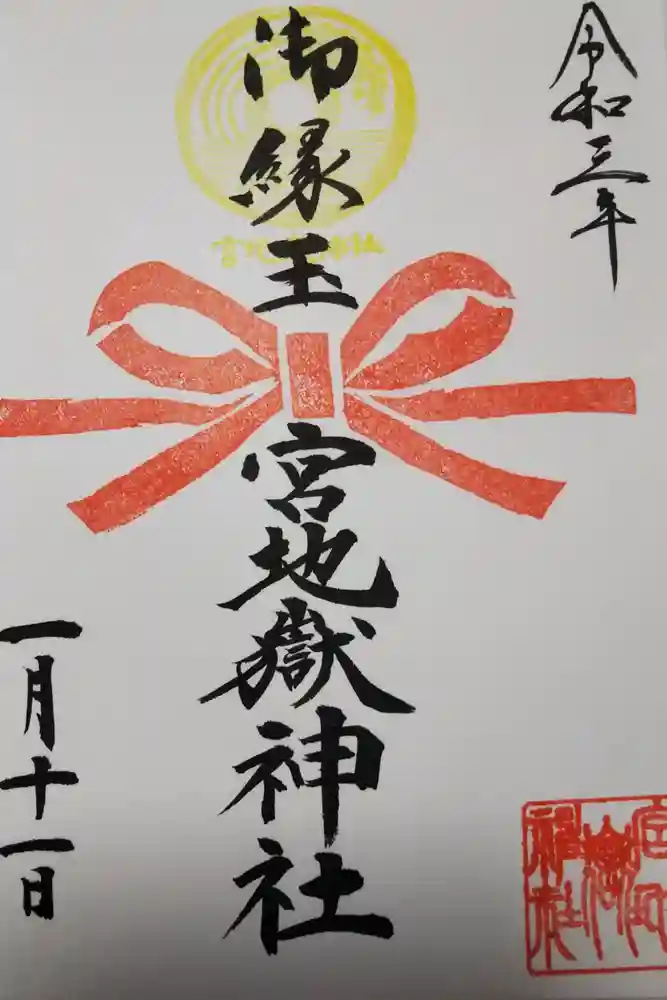 令和三年
御縁玉
宮地嶽神社
一月十一日
宮地嶽神社